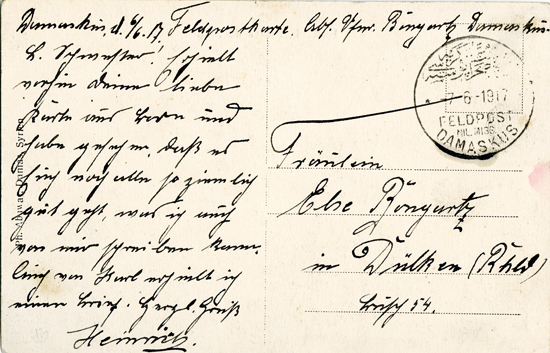 Damaskus, d. 6/6. 17, Feldpostkarte. Abs. Vfw. Böngartz Damaskus.
L. Schwester, erhielt
vorhin Deine liebe
Karte aus und
habe gesehen, daß es
Euch noch alle so ziemlich
gut geht, was ich auch
von mir schreiben kann.
Auch von Karl erhielt ich
einen Brief. Herzl. Gruß
Heinrich.
7-6-1917
FELDPOST
MIL. MISS.
DAMASKUS
Fräulein
Else Böngartz
in Dülken (Rhld)
Busch 54.